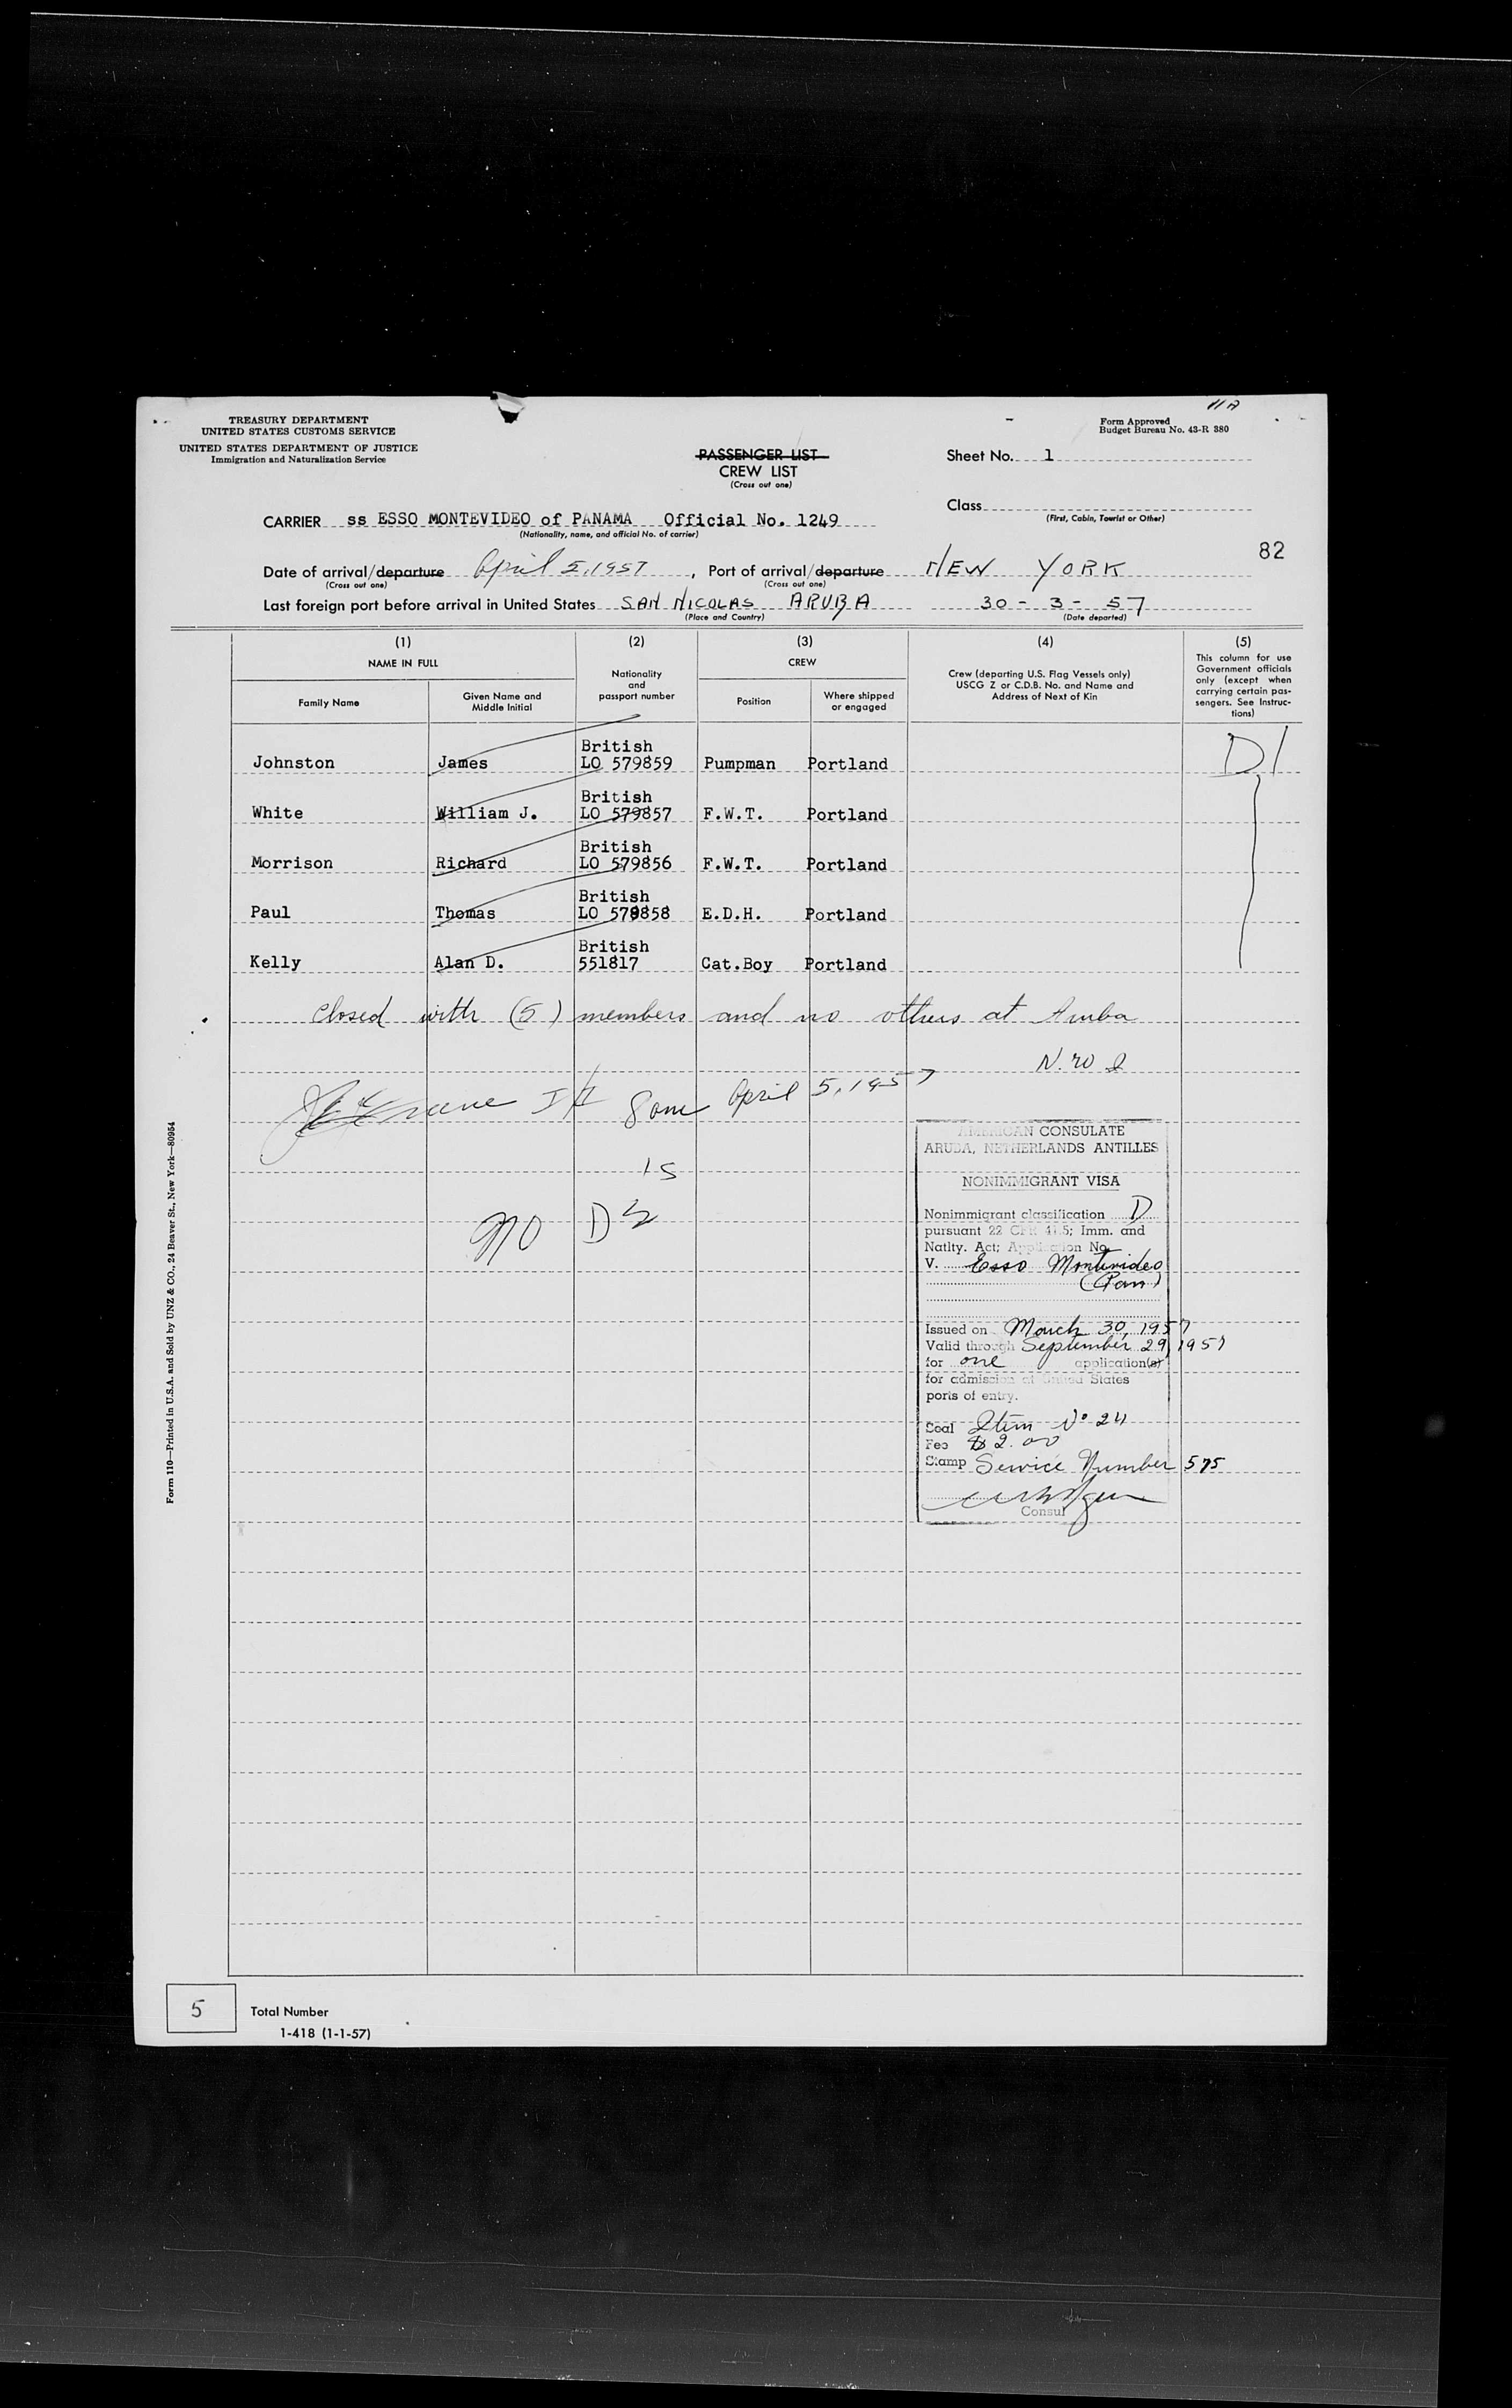 11A
TREASURY DEPARTMENT
UNITED STATES CUSTOMS SERVICE
UNITED STATES DEPARTMENT OF JUSTICE
Immigration and Naturalization Service
Form Approved
Budget Bureau No. 43-R 380
PASSENGER LIST
CREW LIST
(Cross out one)
Sheet No. 1
Class
(First, Cabin, Tourist or Other)
CARRIER ss ESSO MONTEVIDEO of PANAMA Official No. 1249
(Nationality, name, and official No. of carrier)
82
Date of arrival/departure April 5, 1957, Port of arrival/departure NEW YORK
(Cross out one) (Cross out one)
Last foreign port before arrival in United States SAN NICOLAS ARUBA 30-3-57
(Place and Country) (Date departed)
(1) (2) (3) (4) (5)
NAME IN FULL
Nationality and passport number
CREW
Crew (departing U.S. Flag Vessels only) USCG Z or C.D.B. No. and Name and Address of Next of Kin
This column for use Government officials only (except when carrying certain passengers. See Instructions)
Family Name
Given Name and Middle Initial
Position
Where shipped or engaged
British
Johnston James LO 579859 Pumpman Portland D1
British
White William J. LO 579857 F.W.T. Portland
British
Morrison Richard LO 579856 F.W.T. Portland
British
Paul Thomas LO 579858 E.D.H. Portland
British
Kelly Alan D. 551817 Cat.Boy Portland
Closed with (5) members and no others at Aruba
8am April 5, 1957
15
NO D2
AMERICAN CONSULATE
ARUBA, NETHERLANDS ANTILLES
NONIMMIGRANT VISA
Nonimmigrant classification D
pursuant 22 CFR 41.5; Imm. and
Natlty. Act; Application No.
V. Esso Montevideo
(Pan)
Issued on March 30, 1957
Valid through September 29, 1957
for one application(s)
for admission at United States
ports of entry.
Seal Item No 24
Fee $2.00
Stamp Service Number 575
Consul
Form 110—Printed in U.S.A. and Sold by UNZ & CO., 24 Beaver St., New York—80954
5 Total Number
1-418 (1-1-57)